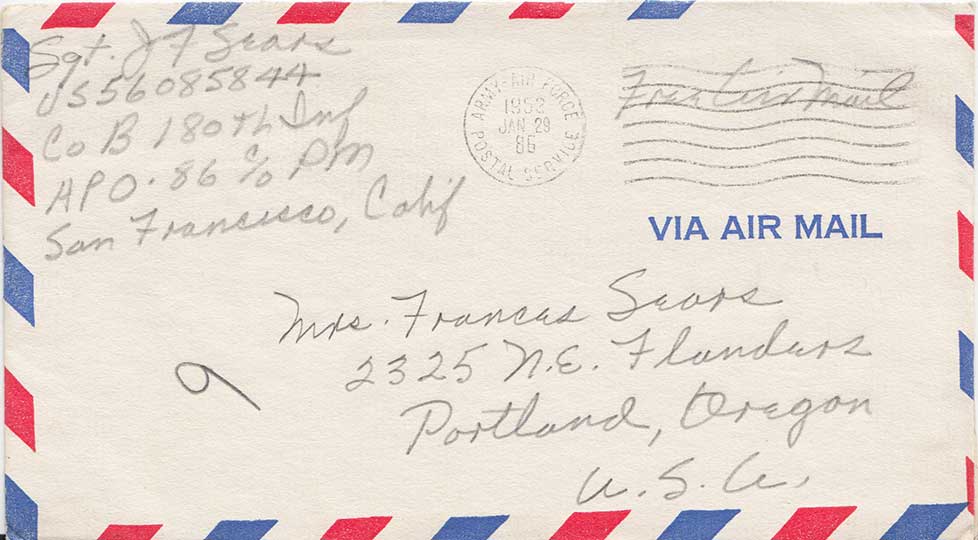 Sgt. J F Sears
US56085844
Co B 180th Inf
APO. 86 c/o PM
San Francisco, Calif
ARMY-AIR FORCE
1953
JAN 29
86
POSTAL SERVICE
Free Air Mail
VIA AIR MAIL
Mrs. Frances Sears
2325 N.E. Flanders
Portland, Oregon
U.S.A.
9